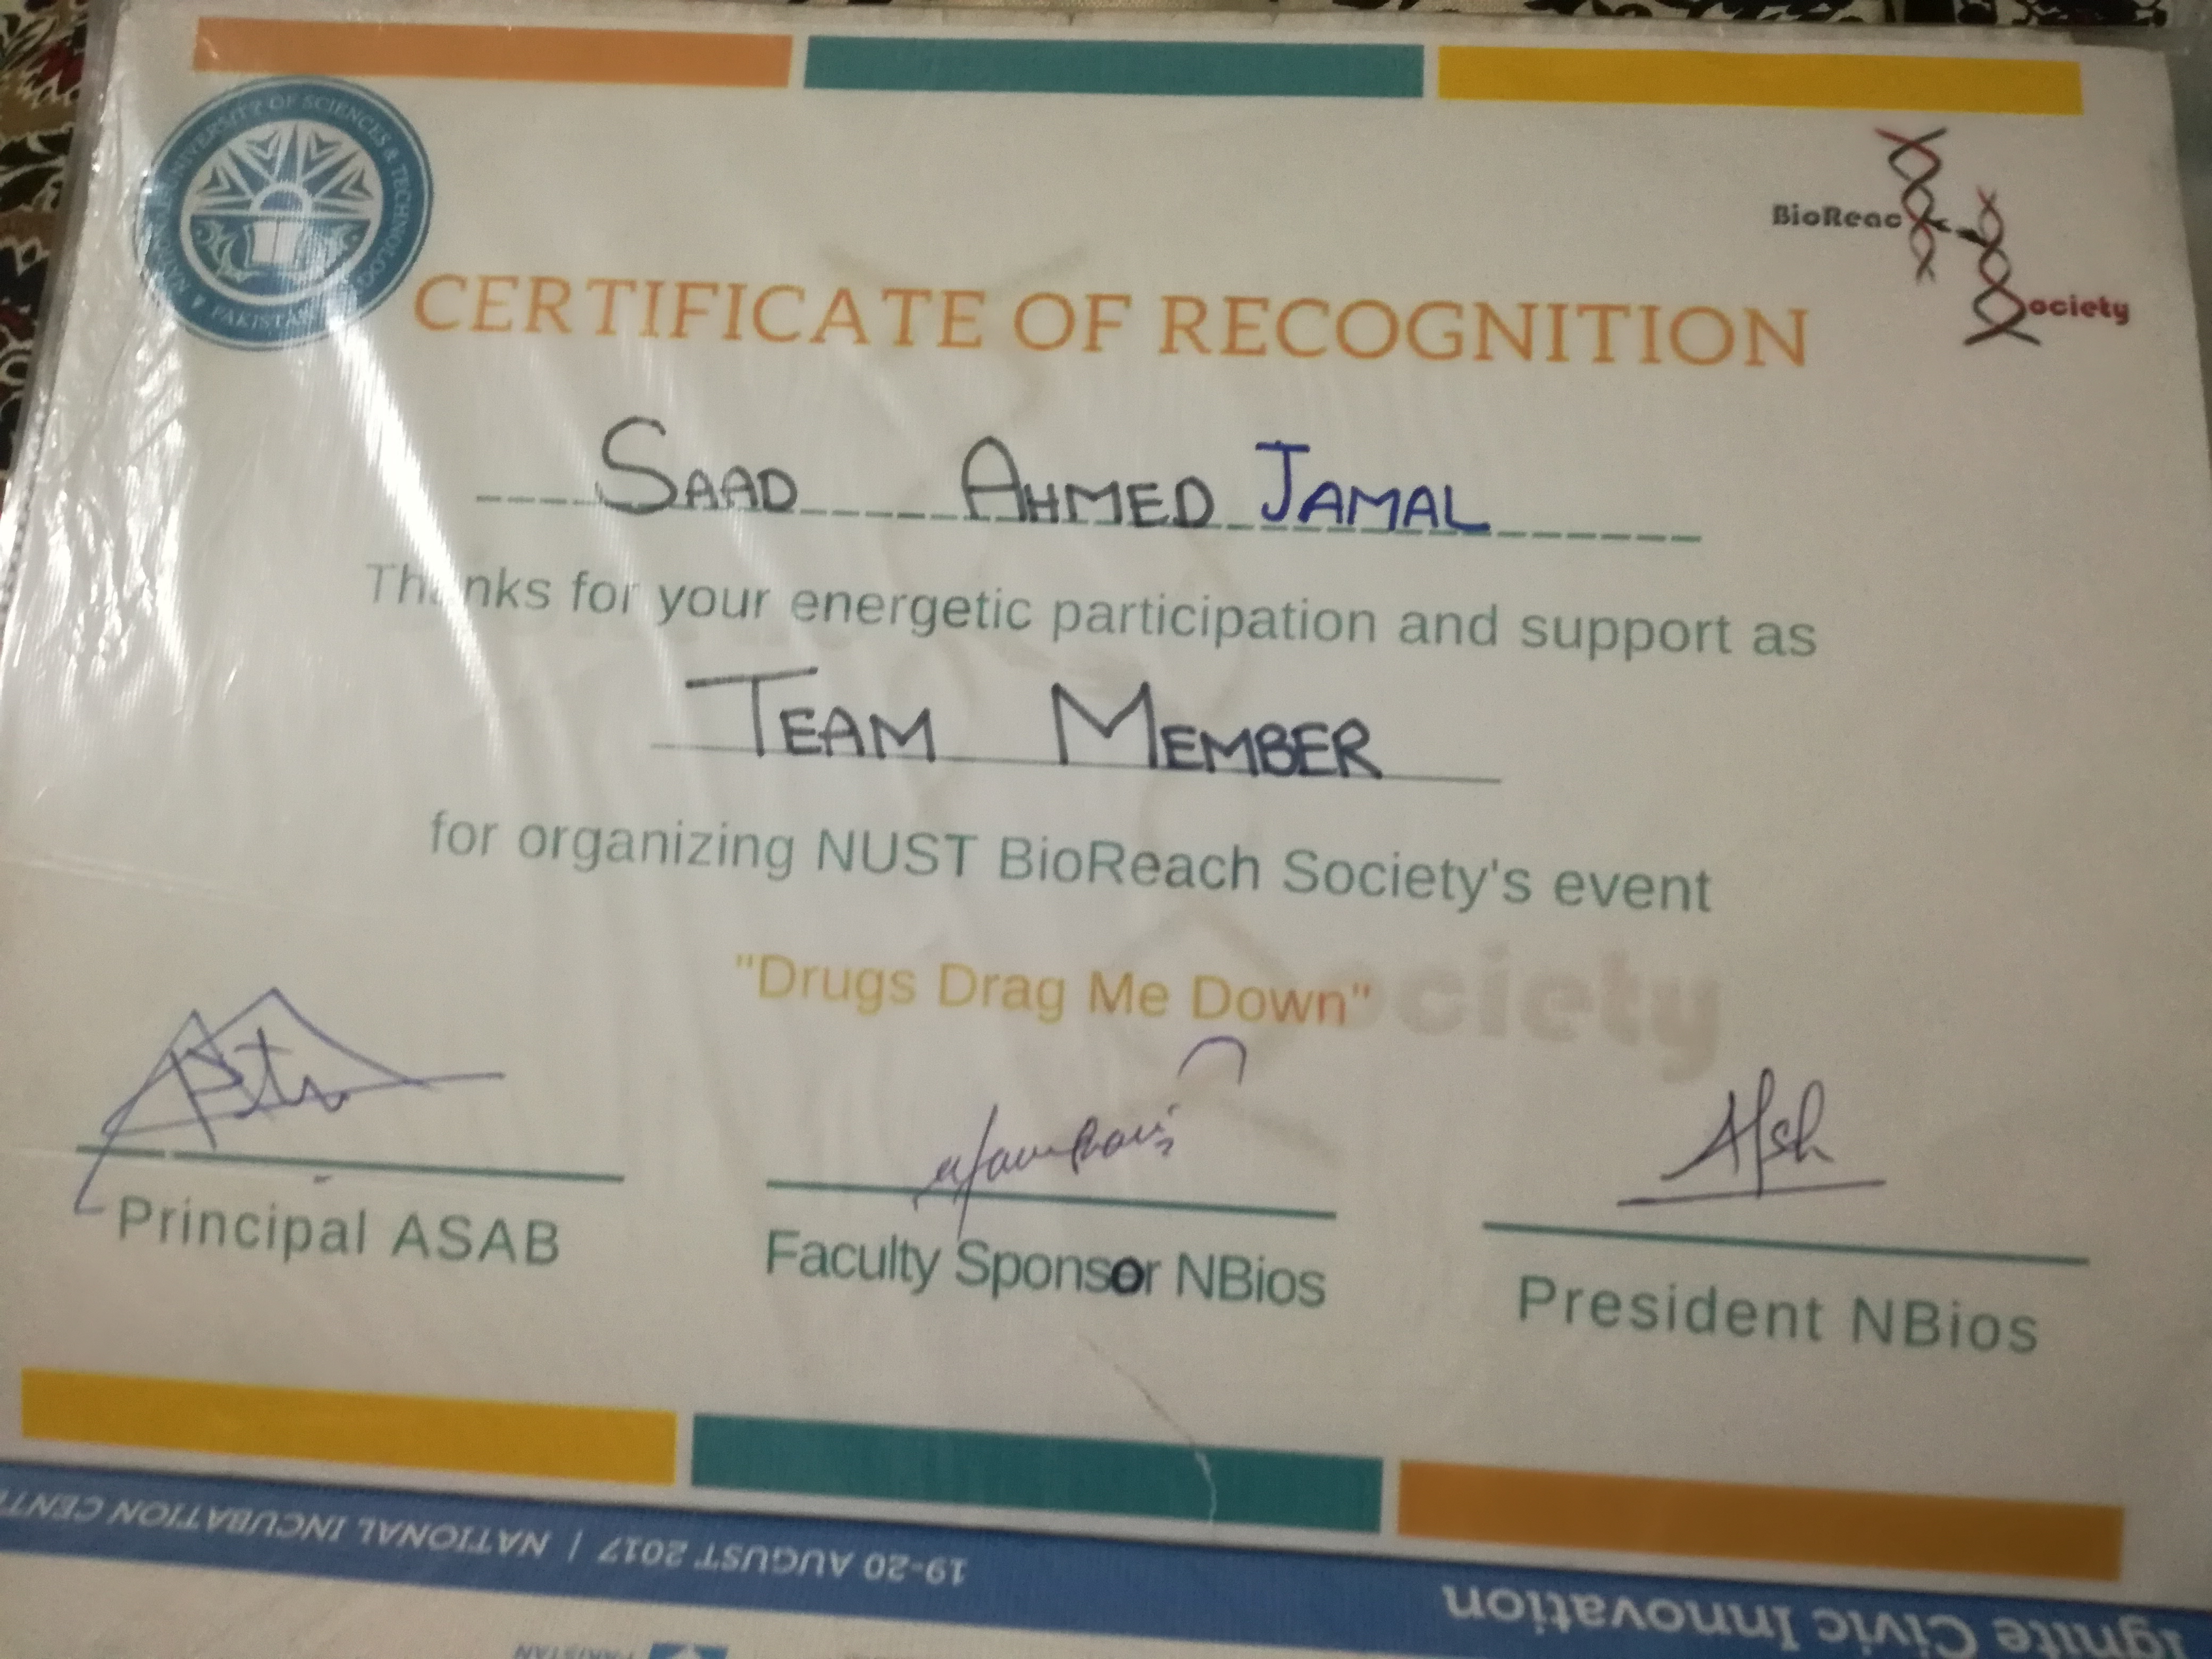 NATIONAL UNIVERSITY OF SCIENCES & TECHNOLOGY
PAKISTAN
BioReac
Society
CERTIFICATE OF RECOGNITION
SAAD AHMED JAMAL
Thanks for your energetic participation and support as
TEAM MEMBER
for organizing NUST BioReach Society's event
"Drugs Drag Me Down"
ciety
Afsh
Principal ASAB
Faculty Sponsor NBios
President NBios
19-20 AUGUST 2017 | NATIONAL INCUBATION
Ignite Civic Innovation
PAKISTAN